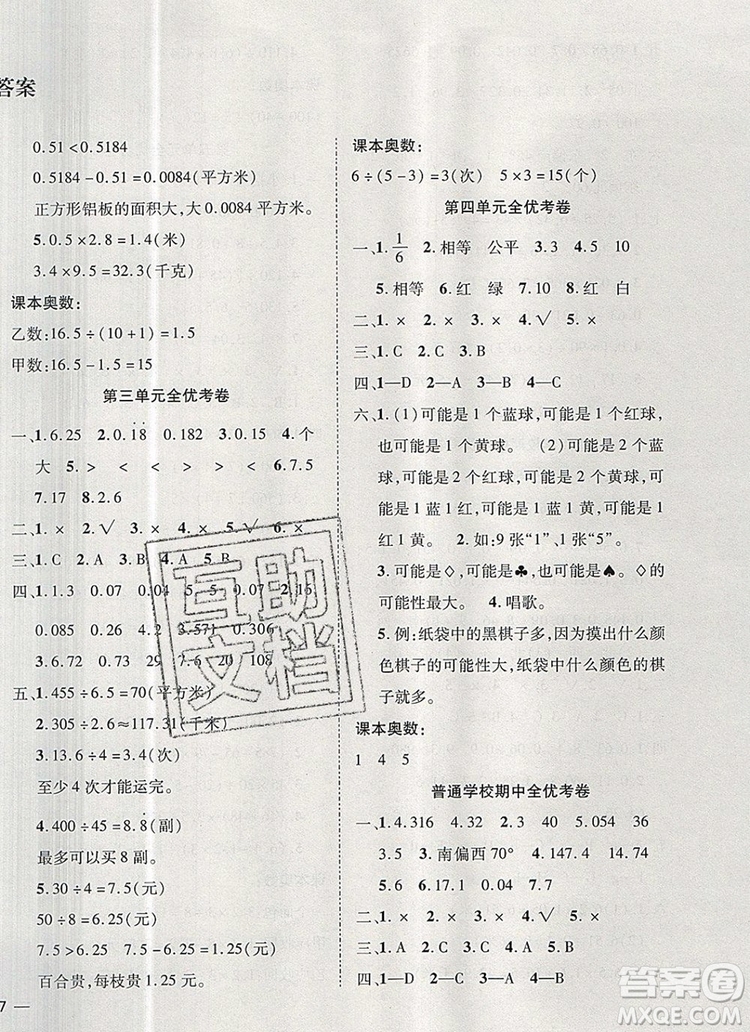 答案
0.51<0.5184
0.5184-0.51=0.0084(平方米)
正方形铝板的面积大,大0.0084平方米。
5.0.5×2.8=1.4(米)
3.4×9.5=32.3(千克)
课本奥数:
乙数:16.5÷(10+1)=1.5
甲数:16.5-1.5=15
第三单元全优考卷
一、1.6.25 2.0.1̇8̇ 0.182 3.0.15 4.个
大 5.> < < > > < 6.7.5
7.17 8.2.6
二、1.× 2.√ 3.√ 4.× 5.√ 6.×
三、1.C 2.D 3.B 4.A 5.B
四、1.1.3 0.07 0.04 5 5 0.07 0.15
0.085 30 2.4 0.247 0.306
3.6.72 20 18 160
五、1.455÷6.5=70(平方米)
2.305÷2.6≈117.31(千米)
3.13.6÷4=3.4(次)
至少4次才能运完。
4.400÷45=8.8̇(副)
最多可以买8副。
5.30÷4=7.5(元)
50÷8=6.25(元)
7.5>6.25 7.5-6.25=1.25(元)
百合贵,每枝贵1.25元。
7 —
课本奥数:
6÷(5-3)=3(次) 5×3=15(个)
第四单元全优考卷
一、1.1/6 2.相等 公平 3.3 4.5 10
5.相等 6.红 绿 7.红 白
二、1.× 2.× 3.× 4.√ 5.×
三、1.C 2.C 3.A 4.B 5.A
四、1—D 2—A 3—B 4—C
六、1.(1)可能是1个蓝球,可能是1个红球,
也可能是1个黄球。 (2)可能是2个蓝球,
可能是2个红球,可能是2个黄球,可能是
1蓝1红,可能是1蓝1黄,也可能是1黄
1红。 2.如:9张“1”、1张“5”。
3.可能是♢,可能是♣,可能是♠。 ♢的
可能性最大。 4.唱歌。
5.例:纸袋中的黑棋子多,因为摸出什么颜
色棋子的可能性大,纸袋中什么颜色的棋
子就多。
课本奥数:
1 4 5
普通学校期中全优考卷
一、1.4.316 4.32 2.0.5 5.054 36
3.5 3.南偏西70° 4.> < < <
5.6 6.17.1 0.04 7.7
二、1.× 2.√ 3.× 4.× 5.×
三、1.A 2.A 3.C 4.B 5.C
四、1—D 2—C 3—A 4—B
互助
文档
答案圈
MXQE.COM